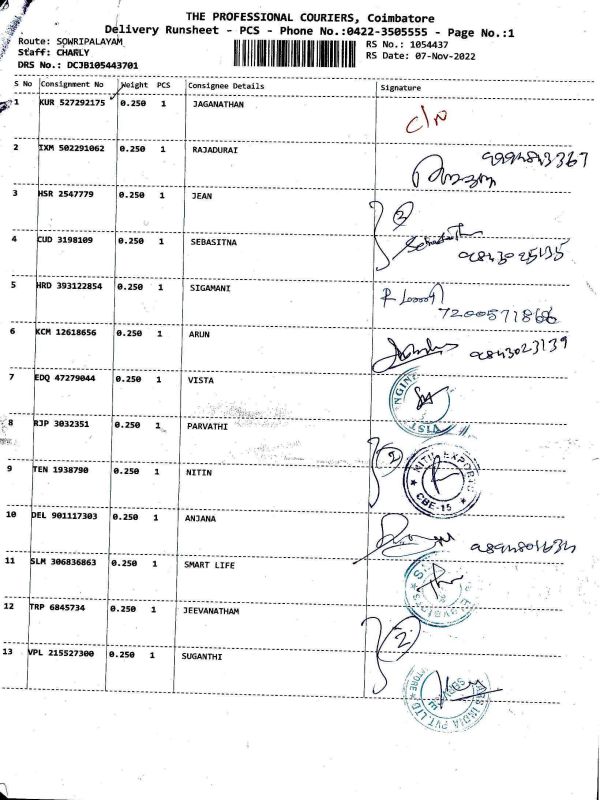 THE PROFESSIONAL COURIERS, Coimbatore
Delivery Runsheet - PCS - Phone No.:0422-3505555 - Page No.:1
Route: SOWRIPALAYAM
Staff: CHARLY
DRS No.: DCJB105443701
RS No.: 1054437
RS Date: 07-Nov-2022
S No Consignment No Weight PCS Consignee Details Signature
1 KUR 527292175 0.250 1 JAGANATHAN
2 IXM 502291062 0.250 1 RAJADURAI
3 HSR 2547779 0.250 1 JEAN 2
4 CUD 3198109 0.250 1 SEBASITNA
5 HRD 393122854 0.250 1 SIGAMANI
6 KCM 12618656 0.250 1 ARUN 9843023139
7 EDQ 47279044 0.250 1 VISTA
8 RJP 3032351 0.250 1 PARVATHI
9 TEN 1938790 0.250 1 NITIN 2 NITIN EXPORTS CBE-15
10 DEL 901117303 0.250 1 ANJANA
11 SLM 306836863 0.250 1 SMART LIFE
12 TRP 6845734 0.250 1 JEEVANATHAM 2
13 VPL 215527300 0.250 1 SUGANTHI INDIA PVT.LTD